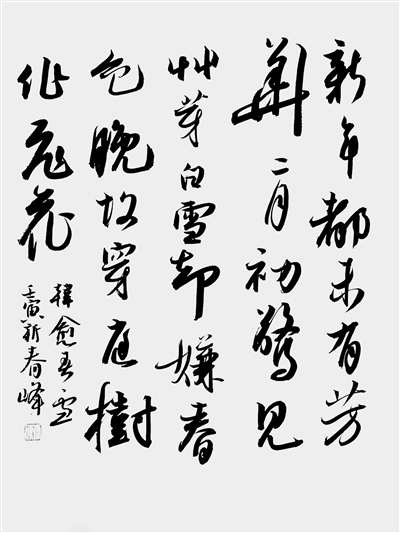 新年都未有芳
華二月初驚見
艸芽白雪却嫌春
色晚故穿庭樹
作飛花
韓愈春雪
壬寅新春峰